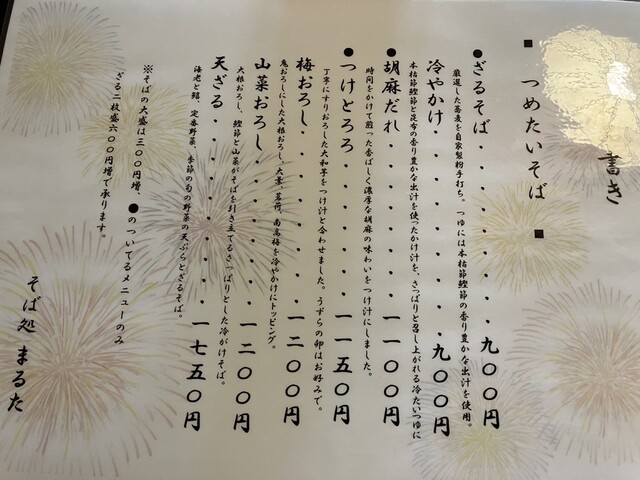 書き
■ つめたいそば ■
●ざるそば・・・・・・・・・・九〇〇円
厳選した蕎麦を自家製粉手打ち。つゆには本枯節鰹節の香り豊かな出汁を使用。
冷やかけ・・・・・・・・・・九〇〇円
本枯節鰹節と昆布の香り豊かな出汁を使ったかけ汁を、さっぱりと召し上がれる冷たいつゆに
●胡麻だれ・・・・・・・・・・一一〇〇円
時間をかけて煎った香ばしく濃厚な胡麻の味わいをつけ汁にしました。
●つけとろろ・・・・・・・・・一一五〇円
丁寧にすりおろした大和芋をつけ汁と合わせました。うずらの卵はお好みで。
梅おろし・・・・・・・・・・一二〇〇円
鬼おろしにした大根おろし、大葉、茗荷、南高梅を冷やかけにトッピング。
山菜おろし・・・・・・・・・一二〇〇円
大根おろし、鰹節と山菜がそばを引き立てるさっぱりとした冷がけそば。
天ざる・・・・・・・・・・・一七五〇円
海老と鱚、定番野菜、季節の旬の野菜の天ぷらとざるそば。
※そばの大盛は三〇〇円増、●のついてるメニューのみ
ざる二枚盛六〇〇円増で承ります。
そば処 まるた